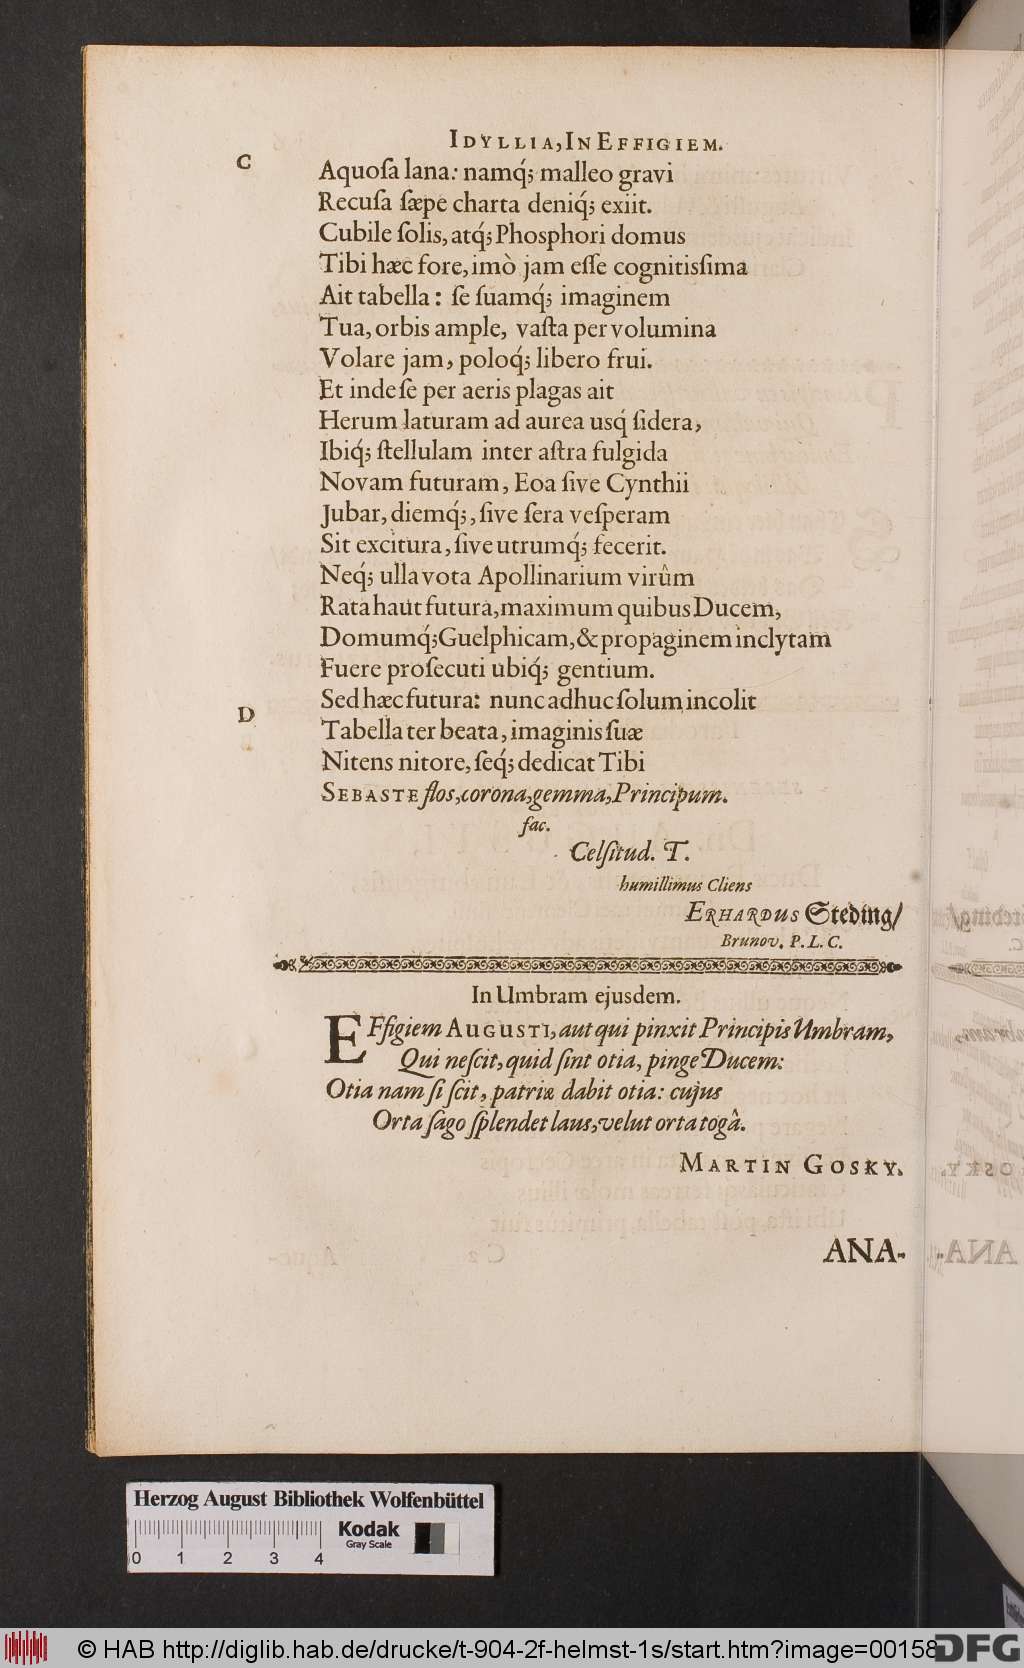 IDYLLIA, IN EFFIGIEM.
C
Aquoſa lana: namq́; malleo gravi
Recuſa ſæpe charta deniq́; exiit.
Cubile ſolis, atq́; Phosphori domus
Tibi hæc fore, imò jam eſſe cognitisſima
Ait tabella: ſe ſuamq́; imaginem
Tua, orbis ample, vaſta per volumina
Volare jam, poloq́; libero frui.
Et inde ſe per aeris plagas ait
Herum laturam ad aurea usq́ ſidera,
Ibiq́; ſtellulam inter aſtra fulgida
Novam futuram, Eoa ſive Cynthii
Jubar, diemq́;, ſive ſera veſperam
Sit excitura, ſive utrumq́; fecerit.
Neq́; ulla vota Apollinarium virûm
Rata haut futura, maximum quibus Ducem,
Domumq́; Guelphicam, & propaginem inclytam
Fuere proſecuti ubiq́; gentium.
Sed hæc futura: nunc adhuc ſolum incolit
D
Tabella ter beata, imaginis ſuæ
Nitens nitore, ſeq́; dedicat Tibi
SEBASTE flos, corona, gemma, Principum.
fac.
Celſitud. T.
humillimus Cliens
ERHARDUS Steding/
Brunov. P. L. C.
In Umbram ejusdem.
EFfigiem AUGUSTI, aut qui pinxit Principis Umbram,
Qui neſcit, quid ſint otia, pinge Ducem:
Otia nam ſi ſcit, patriæ dabit otia: cujus
Orta ſago ſplendet laus, velut orta togâ.
MARTIN GOSKY.
ANA-
Herzog August Bibliothek Wolfenbüttel
Kodak
Gray Scale
0 1 2 3 4
© HAB http://diglib.hab.de/drucke/t-904-2f-helmst-1s/start.htm?image=00158
DFG